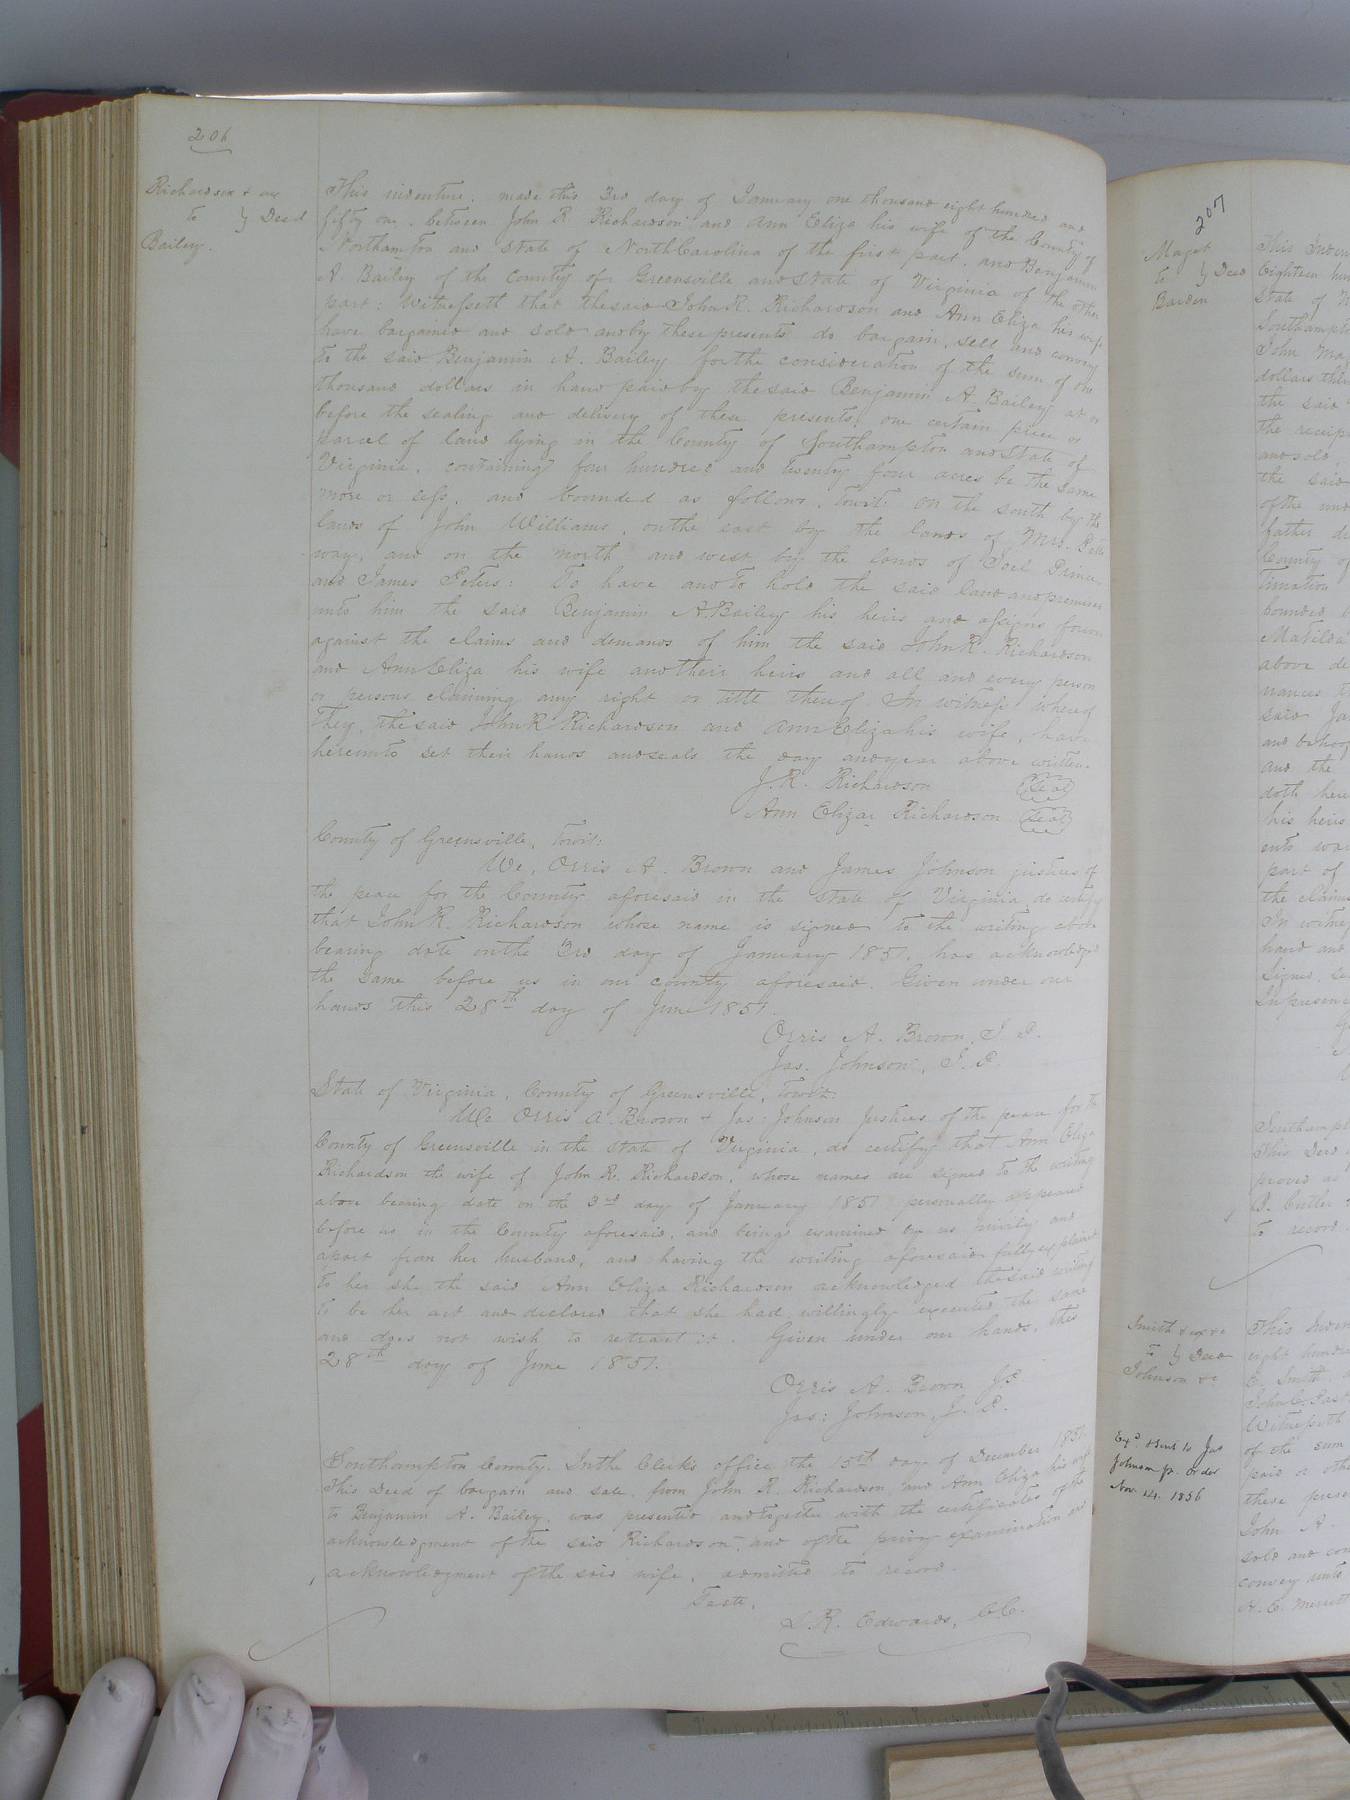 206
Richardson & ux
to } Deed
Bailey.
This indenture, made this 3rd day of January one thousand eight hundred and
fifty one, between John R. Richardson and Ann Eliza his wife of the County of
Northampton and State of North Carolina of the first part, and Benjamin
A. Bailey of the County of Greensville and State of Virginia of the other
part: Witnesseth that the said John R. Richardson and Ann Eliza his wife
have bargained and sold and by these presents do bargain, sell and convey
to the said Benjamin A. Bailey for the consideration of the sum of one
thousand dollars in hand paid by the said Benjamin A. Bailey at or
before the sealing and delivery of these presents, one certain piece or
parcel of land lying in the County of Southampton and State of
Virginia, containing four hundred and twenty four acres be the same
more or less, and bounded as follows, towit: on the south by the
lands of John Williams, on the east by the lands of Mrs. Pette
way, and on the north and west by the lands of Joel Prince
and James Peters: To have and to hold the said land and premises
unto him the said Benjamin A. Bailey his heirs and assigns forever
against the claims and demands of him the said John R. Richardson
and Ann Eliza his wife and their heirs and all and every person
or persons claiming any right or title thereof. In witness whereof
They, the said John R Richardson and Ann Eliza his wife, have
hereunto set their hands and seals the day and year above written.
J. R. Richardson Seal
Ann Eliza Richardson Seal
County of Greensville, towit:
We, Orris A. Brown and James Johnson justices of
the peace for the County aforesaid in the State of Virginia do certify
that John R. Richardson whose name is signed to the writing above
bearing date on the 3rd day of January 1851, has acknowledged
the same before us in our county aforesaid. Given under our
hands this 28th day of June 1851.
Orris A. Brown, J. P.
Jas. Johnson, J. P.
State of Virginia, County of Greensville, towit:
We Orris A. Brown & Jas: Johnson Justices of the peace for the
County of Greensville in the State of Virginia, do certify that Ann Eliza
Richardson the wife of John R. Richardson, whose names are signed to the writing
above bearing date on the 3rd day of January 1851 personally appeared
before us in the County aforesaid, and being examined by us privily and
apart from her husband, and having the writing aforesaid fully explained
to her she the said Ann Eliza Richardson acknowledged the said writing
to be her act and declared that she had willingly executed the same
and does not wish to retract it. Given under our hands, this
28th day of June 1851.
Orris A. Brown JP.
Jas: Johnson, J. P.
Southampton County. In the Clerk's office the 15th day of December 1851.
This Deed of bargain and sale, from John R. Richardson and Ann Eliza his wife
to Benjamin A. Bailey, was presented and together with the certificates of the
acknowledgment of the said Richardson, and of the privy examination and
acknowledgment of the said wife, admitted to record.
Teste,
L. R. Edwards, C. C.
207
Maget
to } Deed
Barden
This Inden
Eighteen hun
State of
Southampto
John Mag
dollars
the said
the receip
and sold,
the said
of the
father de
County of
bounded
Matilda
above de
nances
said
and behoof
and the
doth here
his heirs
part of
the claims
In witness
hand and
Signed, se
In presence
Southampt
This Deed
proved
B. Butler
to record
Smith & ux &c
to } Deed
Johnson &c
Exd. & sent to Jas
Johnson pr. order
Nov. 14. 1856
This Inden
eight hundre
E. Smith
John C.
Witnesseth
of the sum
paid
these prese
John A.
sold and con
convey unto